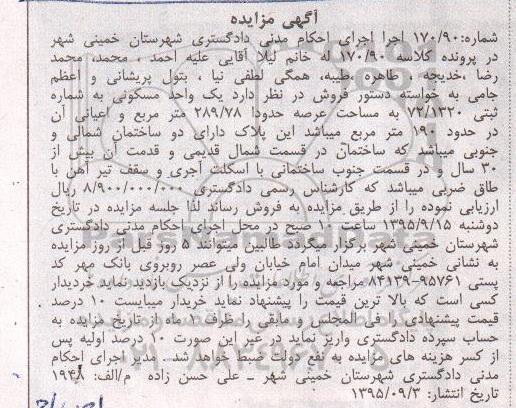 آگهی مزایده
شماره:۱۷۰/۹۰ اجرا اجرای احکام مدنی دادگستری شهرستان خمینی شهر
در پرونده کلاسه ۱۷۰/۹۰ له خانم لیلا آقایی علیه احمد ، محمد، محمد
رضا ،خدیجه ، طاهره ،طیبه، همگی لطفی نیا ، بتول پریشانی و اعظم
جامی به خواسته دستور فروش در نظر دارد یک واحد مسکونی به شماره
ثبتی ۷۲/۱۳۲۰ به مساحت عرصه حدودا ۲۸۹/۷۸ متر مربع و اعیانی آن
در حدود ۱۹۰ متر مربع میباشد این پلاک دارای دو ساختمان شمالی و
جنوبی میباشد که ساختمان در قسمت شمال قدیمی و قدمت آن بیش از
۳۰ سال و در قسمت جنوب ساختمانی با اسکلت آجری و سقف تیر آهن با
طاق ضربی میباشد که کارشناس رسمی دادگستری ۸/۹۰۰/۰۰۰/۰۰۰ ریال
ارزیابی نموده را از طریق مزایده به فروش رساند لذا جلسه مزایده در تاریخ
دوشنبه ۱۳۹۵/۹/۱۵ ساعت ۱۰ صبح در محل اجرای احکام مدنی دادگستری
شهرستان خمینی شهر برگزار میگردد طالبین میتوانند ۵ روز قبل از روز مزایده
به نشانی خمینی شهر میدان امام خیابان ولی عصر روبروی بانک مهر کد
پستی ۹۵۷۶۱-۸۴۱۳۹ مراجعه و مورد مزایده را از نزدیک بازدید نماید خریدار
کسی است که بالا ترین قیمت را پیشنهاد نماید خریدار میبایست ۱۰ درصد
قیمت پیشنهادی را فی المجلس و مابقی را ظرف ۱ ماه از تاریخ مزایده به
حساب سپرده دادگستری واریز نماید در غیر این صورت ۱۰ درصد اولیه پس
از کسر هزینه های مزایده به نفع دولت ضبط خواهد شد . مدیر اجرای احکام
مدنی دادگستری شهرستان خمینی شهر ـ علی حسن زاده م/الف: ۱۹۴۸
تاریخ انتشار: ۱۳۹۵/۰۹/۳